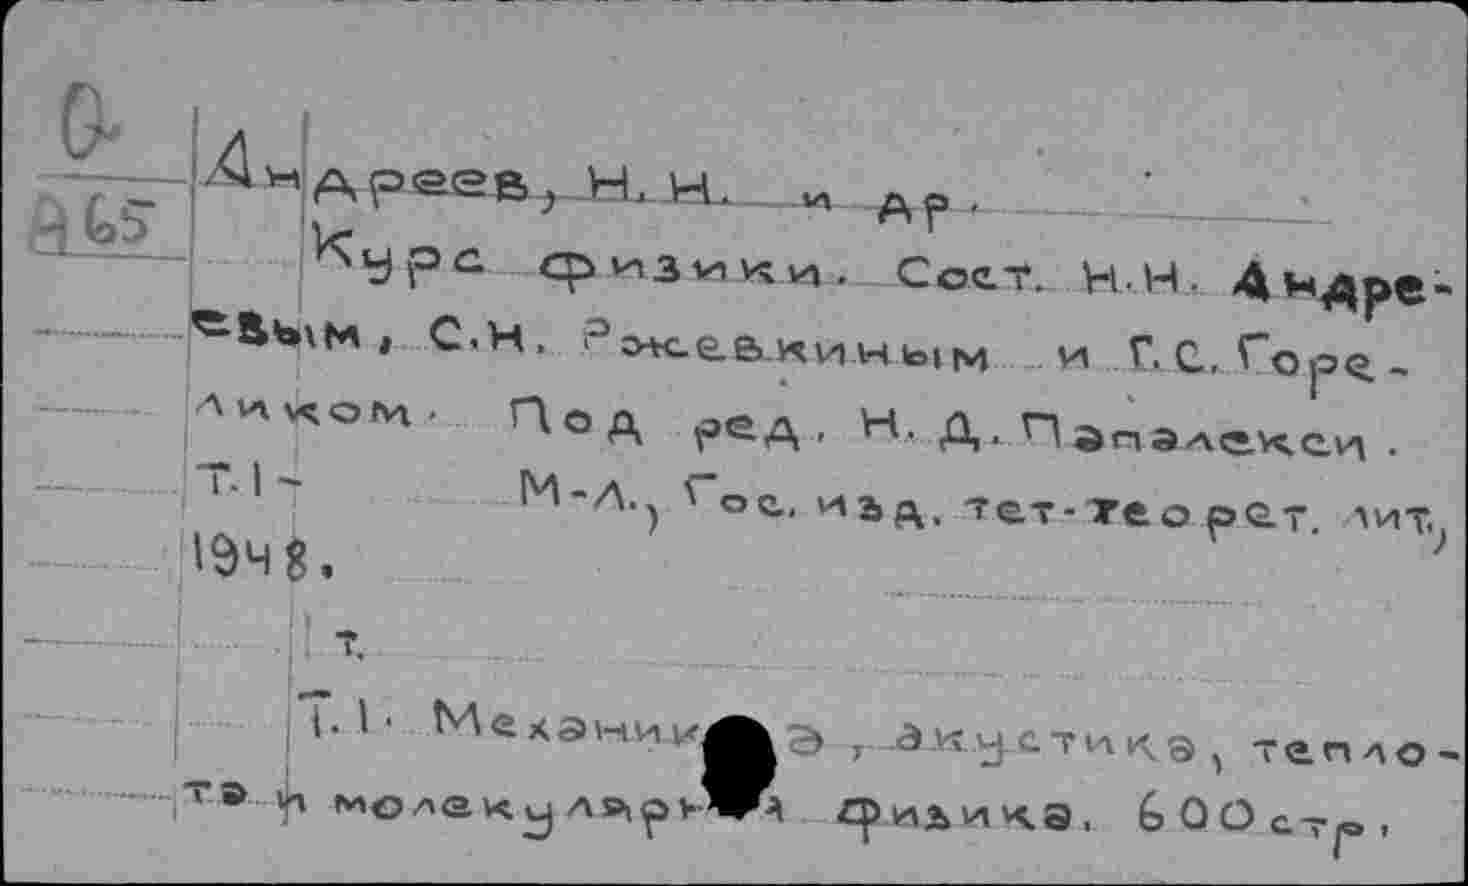 A65
Андреев, Н. Н. и др.
Курс физики. Сост. Н.Н. Андре-
евым, С.Н. Ржевкиным и Г.С. Горе-
ликом. Под ред. Н. Д. Папалекси.
Т.1- М-Л., Гос. изд. тет-теорет. лит.,
1948.
т.
Т.1. Механика, акустика, тепло-
та и молекулярная физика. 600 стр.